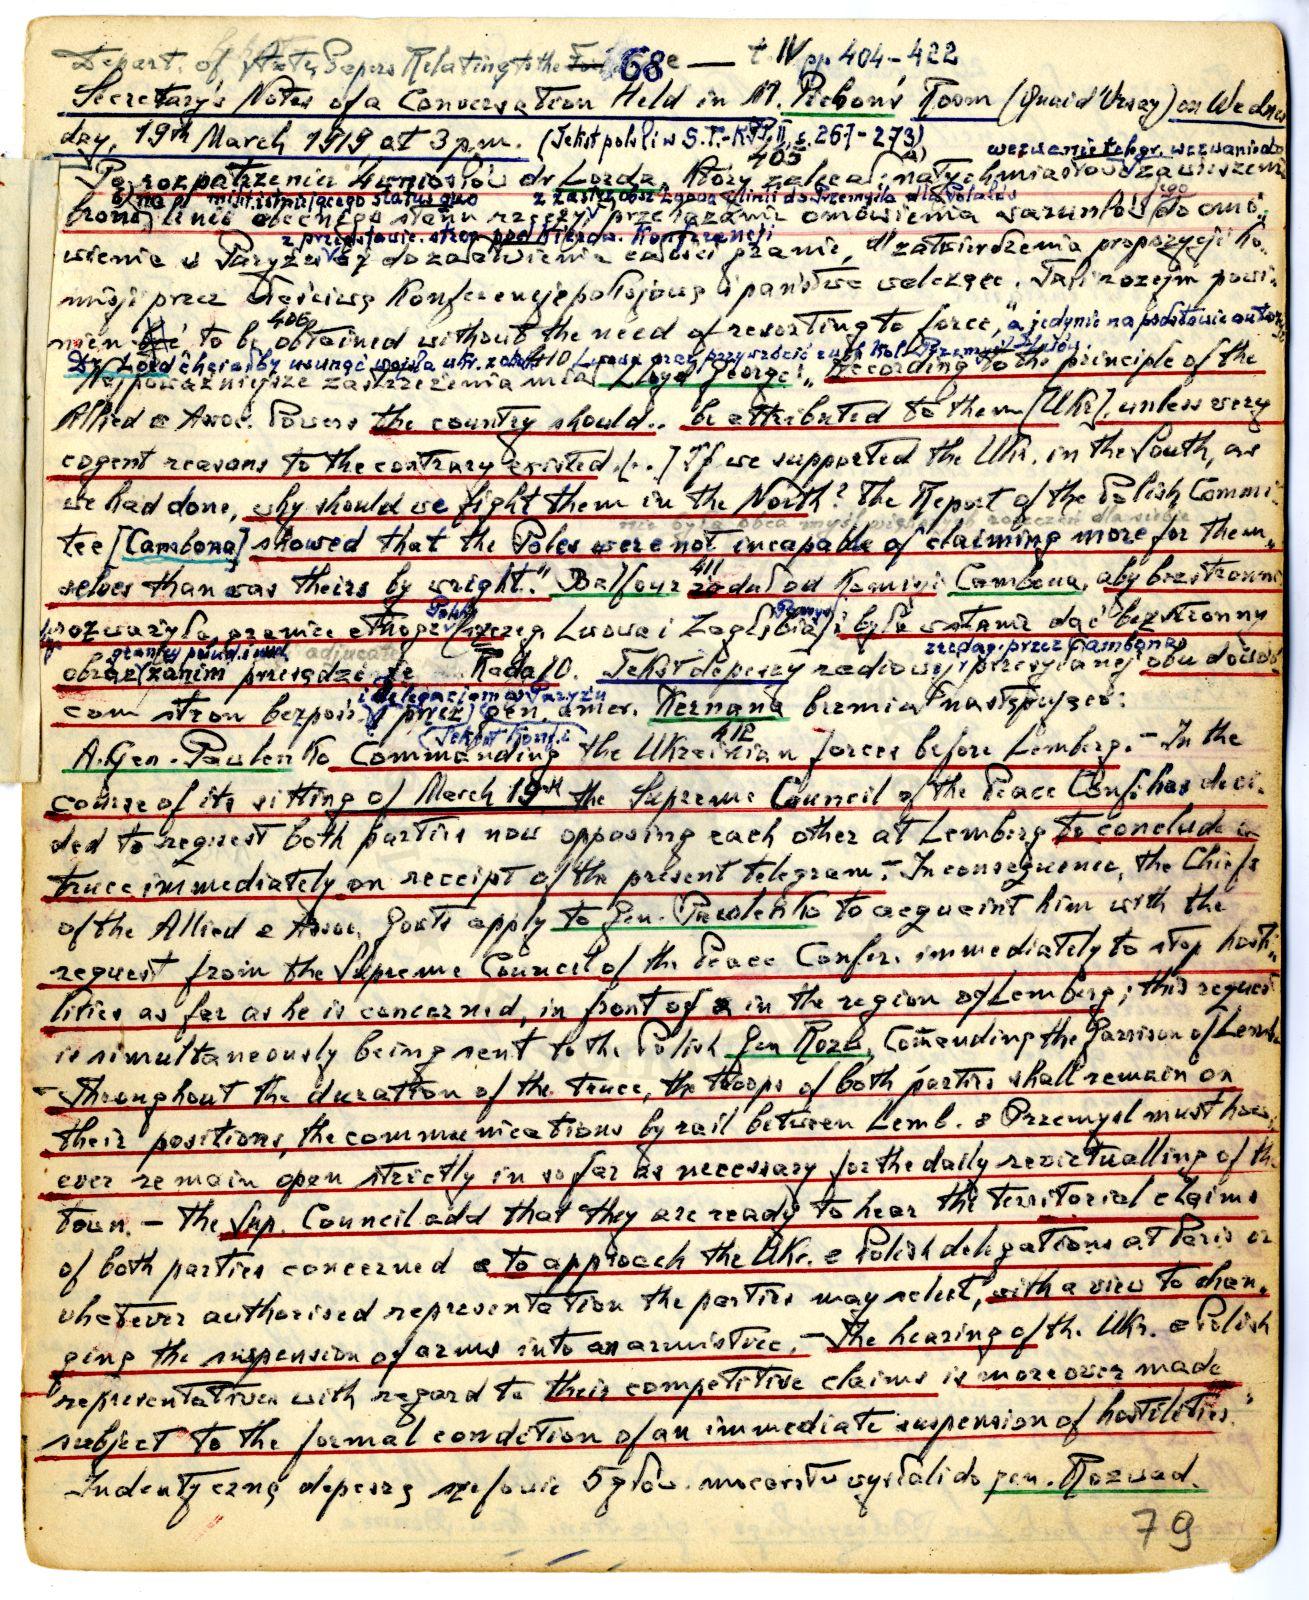 Depart. of State, Papers Relating to the 68 — t. IV pp 404-422
Secretary's Notes of a Conversation Held in M. Pichon's Room (Quai d'Orsay) on Wednes
day, 19th March 1919 at 3 p.m. (Tekst polski w S.P.-K.P.P. II, s. 267-273)
405 a) wezwanie telegr.
Po rozpatrzeniu 4 wniosków dr Lorda, który zalecał: natychmiastow zawieszeni
b) na istniejącego status quo z linii do Przemyśla dla Polaków jego
broni, linie obecnego stanu rzeczy, omówienia warunków do omó-
z przedstawic. stron Konferencji
wienia w Paryżu d) zatwierdzenia propozycji Ko-
misji przez Konferencję pokojową i państwa walczące. Taki rozejm powi-
406
nien to be obtained without the need of resorting to force," a jedynie na podstawie autory
Dr Lord chciałby usunąć wojska ukr. 410
Najpoważniejsze zastrzeżenia miał Lloyd George: "According to the principle of the
Allied & Assoc. Powers the country should.. be attributed to them [Ukr], unless very
cogent reasons to the contrary existed. [..] If we supported the Ukr. in the South, as
we had done, why should we fight them in the North? The Report of the Polish Commi-
tee [Cambona] showed that the Poles were not incapable of claiming more for them-
411
selves than was theirs by wright." Balfour żądał od Komisji Cambona, aby bezstronnie
rozważyła granice etnogr. Lwowa i Zagłębia i była w stanie dać bezstronny
granicy adjucate zredag. przez Cambona
obraz zanim Rada 10. Tekst depeszy radiowej, przesyłanej obu dowód-
i delegacjom w Paryżu
com stron bezpoś. i przez gen. amer. Kernana brzmiał następująco:
412
A. Gen. Pawlenko Commanding the Ukrainian forces before Lemberg. - In the
course of its sitting of March 19th the Supreme Council of the Peace Conf. has deci-
ded to request both parties now opposing each other at Lemberg to conclude a
truce immediately on receipt of the present telegram. - In consequence, the Chiefs
of the Allied & Assoc. Govts apply to Gen. Pawlenko to acquaint him with the
request from the Supreme Council of the Peace Confer. immediately to stop hosti-
lities as far as he is concerned, in front of & in the region of Lemberg; this request
is simultaneously being sent to the Polish Gen Rozw. Commanding the Garrison of Lemb.
- Throughout the duration of the truce, the troops of both parties shall remain on
their positions, the communications by rail between Lemb. & Przemysl must how-
ever remain open strictly in so far as necessary for the daily revictualling of the
town. - The Sup. Council add that they are ready to hear the territorial claims
of both parties concerned & to approach the Ukr. & Polish delegations at Paris or
whatever authorised representation the parties may select, with a view to chan-
ging the suspension of arms into an armistice. - The hearing of the Ukr. & Polish
representatives with regard to their competitive claims is moreover made
subject to the formal condition of an immediate suspension of hostilities."
Indentyczną depeszę szefowie 5 głów. mocarstw wysłali do gen. Rozwad.
79